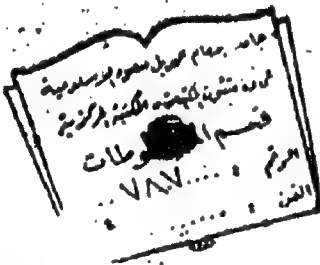 جامعة الإمام محمد بن سعود الإسلامية
المكتبة المركزية
قسم المخطوطات
الرقم : ٧٨٧
الفن :